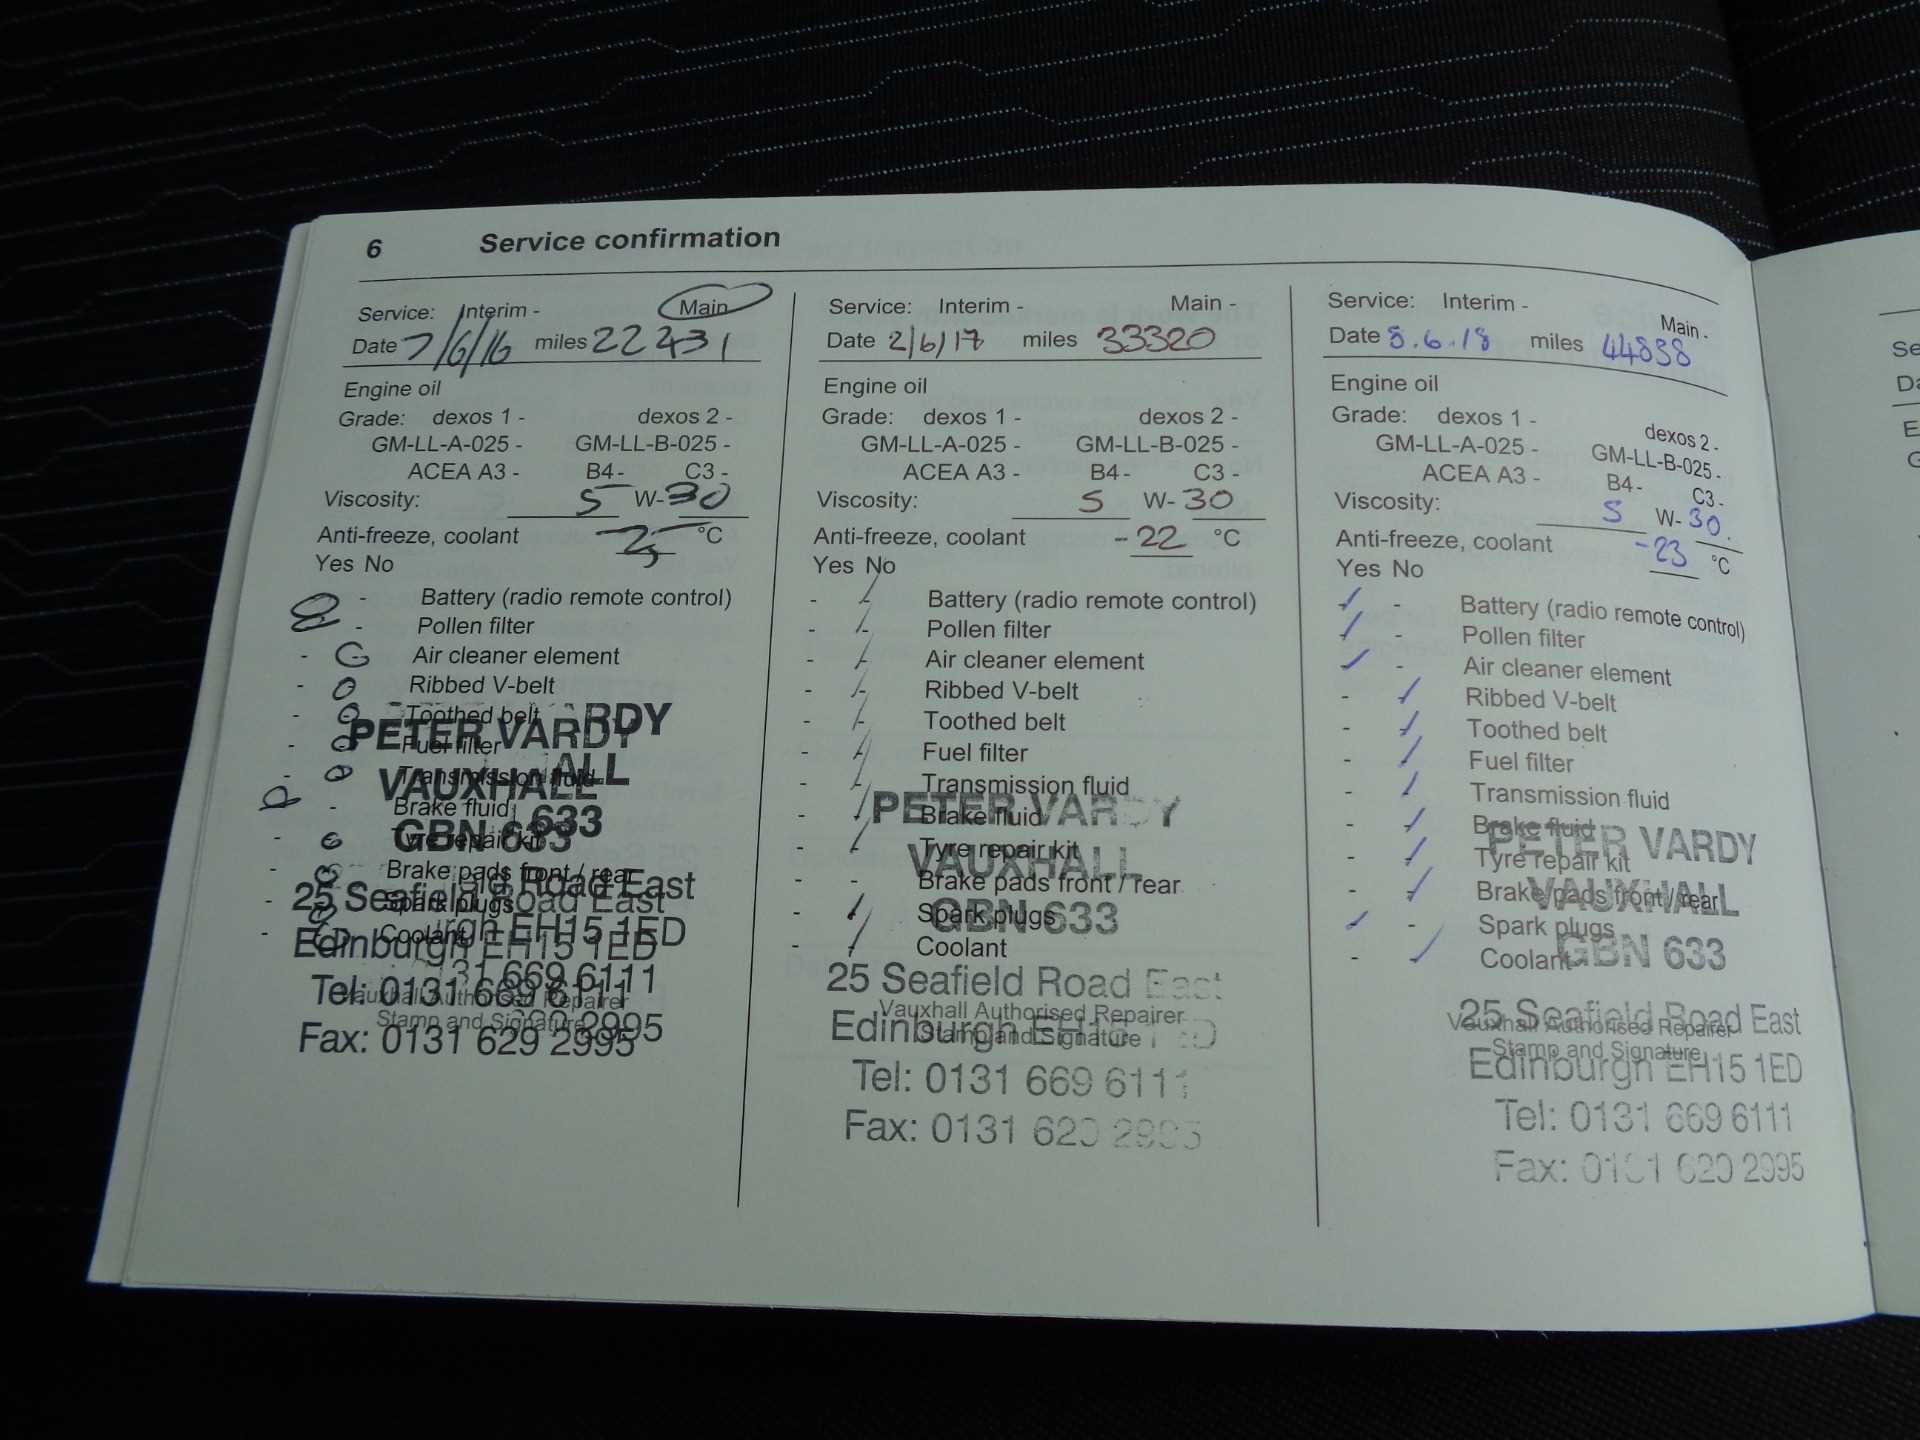 6 Service confirmation
Service: Interim - Main
Date 7/6/16 miles 22431
Engine oil
Grade: dexos 1 - dexos 2 -
GM-LL-A-025 - GM-LL-B-025 -
ACEA A3 - B4 - C3 -
Viscosity: 5 W- 30
Anti-freeze, coolant °C
Yes No
- Battery (radio remote control)
- Pollen filter
- Air cleaner element
- Ribbed V-belt
- Toothed belt
- Fuel filter
- Transmission fluid
- Brake fluid
- Tyre repair kit
- Brake pads front / rear
- Spark plugs
- Coolant
PETER VARDY
VAUXHALL
GBN 633
25 Seafield Road East
Edinburgh EH15 1ED
Tel: 0131 669 6111
Vauxhall Authorised Repairer
Stamp and Signature
Fax: 0131 629 2995
Service: Interim - Main -
Date 2/6/17 miles 33320
Engine oil
Grade: dexos 1 - dexos 2 -
GM-LL-A-025 - GM-LL-B-025 -
ACEA A3 - B4 - C3 -
Viscosity: 5 W- 30
Anti-freeze, coolant -22 °C
Yes No
- - Battery (radio remote control)
- - Pollen filter
- - Air cleaner element
- - Ribbed V-belt
- - Toothed belt
- - Fuel filter
- - Transmission fluid
- - Brake fluid
- - Tyre repair kit
- - Brake pads front / rear
- - Spark plugs
- - Coolant
PETER VARDY
VAUXHALL
GBN 633
25 Seafield Road East
Vauxhall Authorised Repairer
Edinburgh EH15 1ED
Stamp and Signature
Tel: 0131 669 6111
Fax: 0131 629 2995
Service: Interim - Main -
Date 5.6.18 miles 44838
Engine oil
Grade: dexos 1 - dexos 2 -
GM-LL-A-025 - GM-LL-B-025 -
ACEA A3 - B4 - C3 -
Viscosity: 5 W- 30
Anti-freeze, coolant -23 °C
Yes No
- Battery (radio remote control)
- Pollen filter
- Air cleaner element
- Ribbed V-belt
- Toothed belt
- Fuel filter
- Transmission fluid
- Brake fluid
- Tyre repair kit
- Brake pads front / rear
- Spark plugs
- Coolant
PETER VARDY
VAUXHALL
GBN 633
25 Seafield Road East
Vauxhall Authorised Repairer
Stamp and Signature
Edinburgh EH15 1ED
Tel: 0131 669 6111
Fax: 0131 629 2995